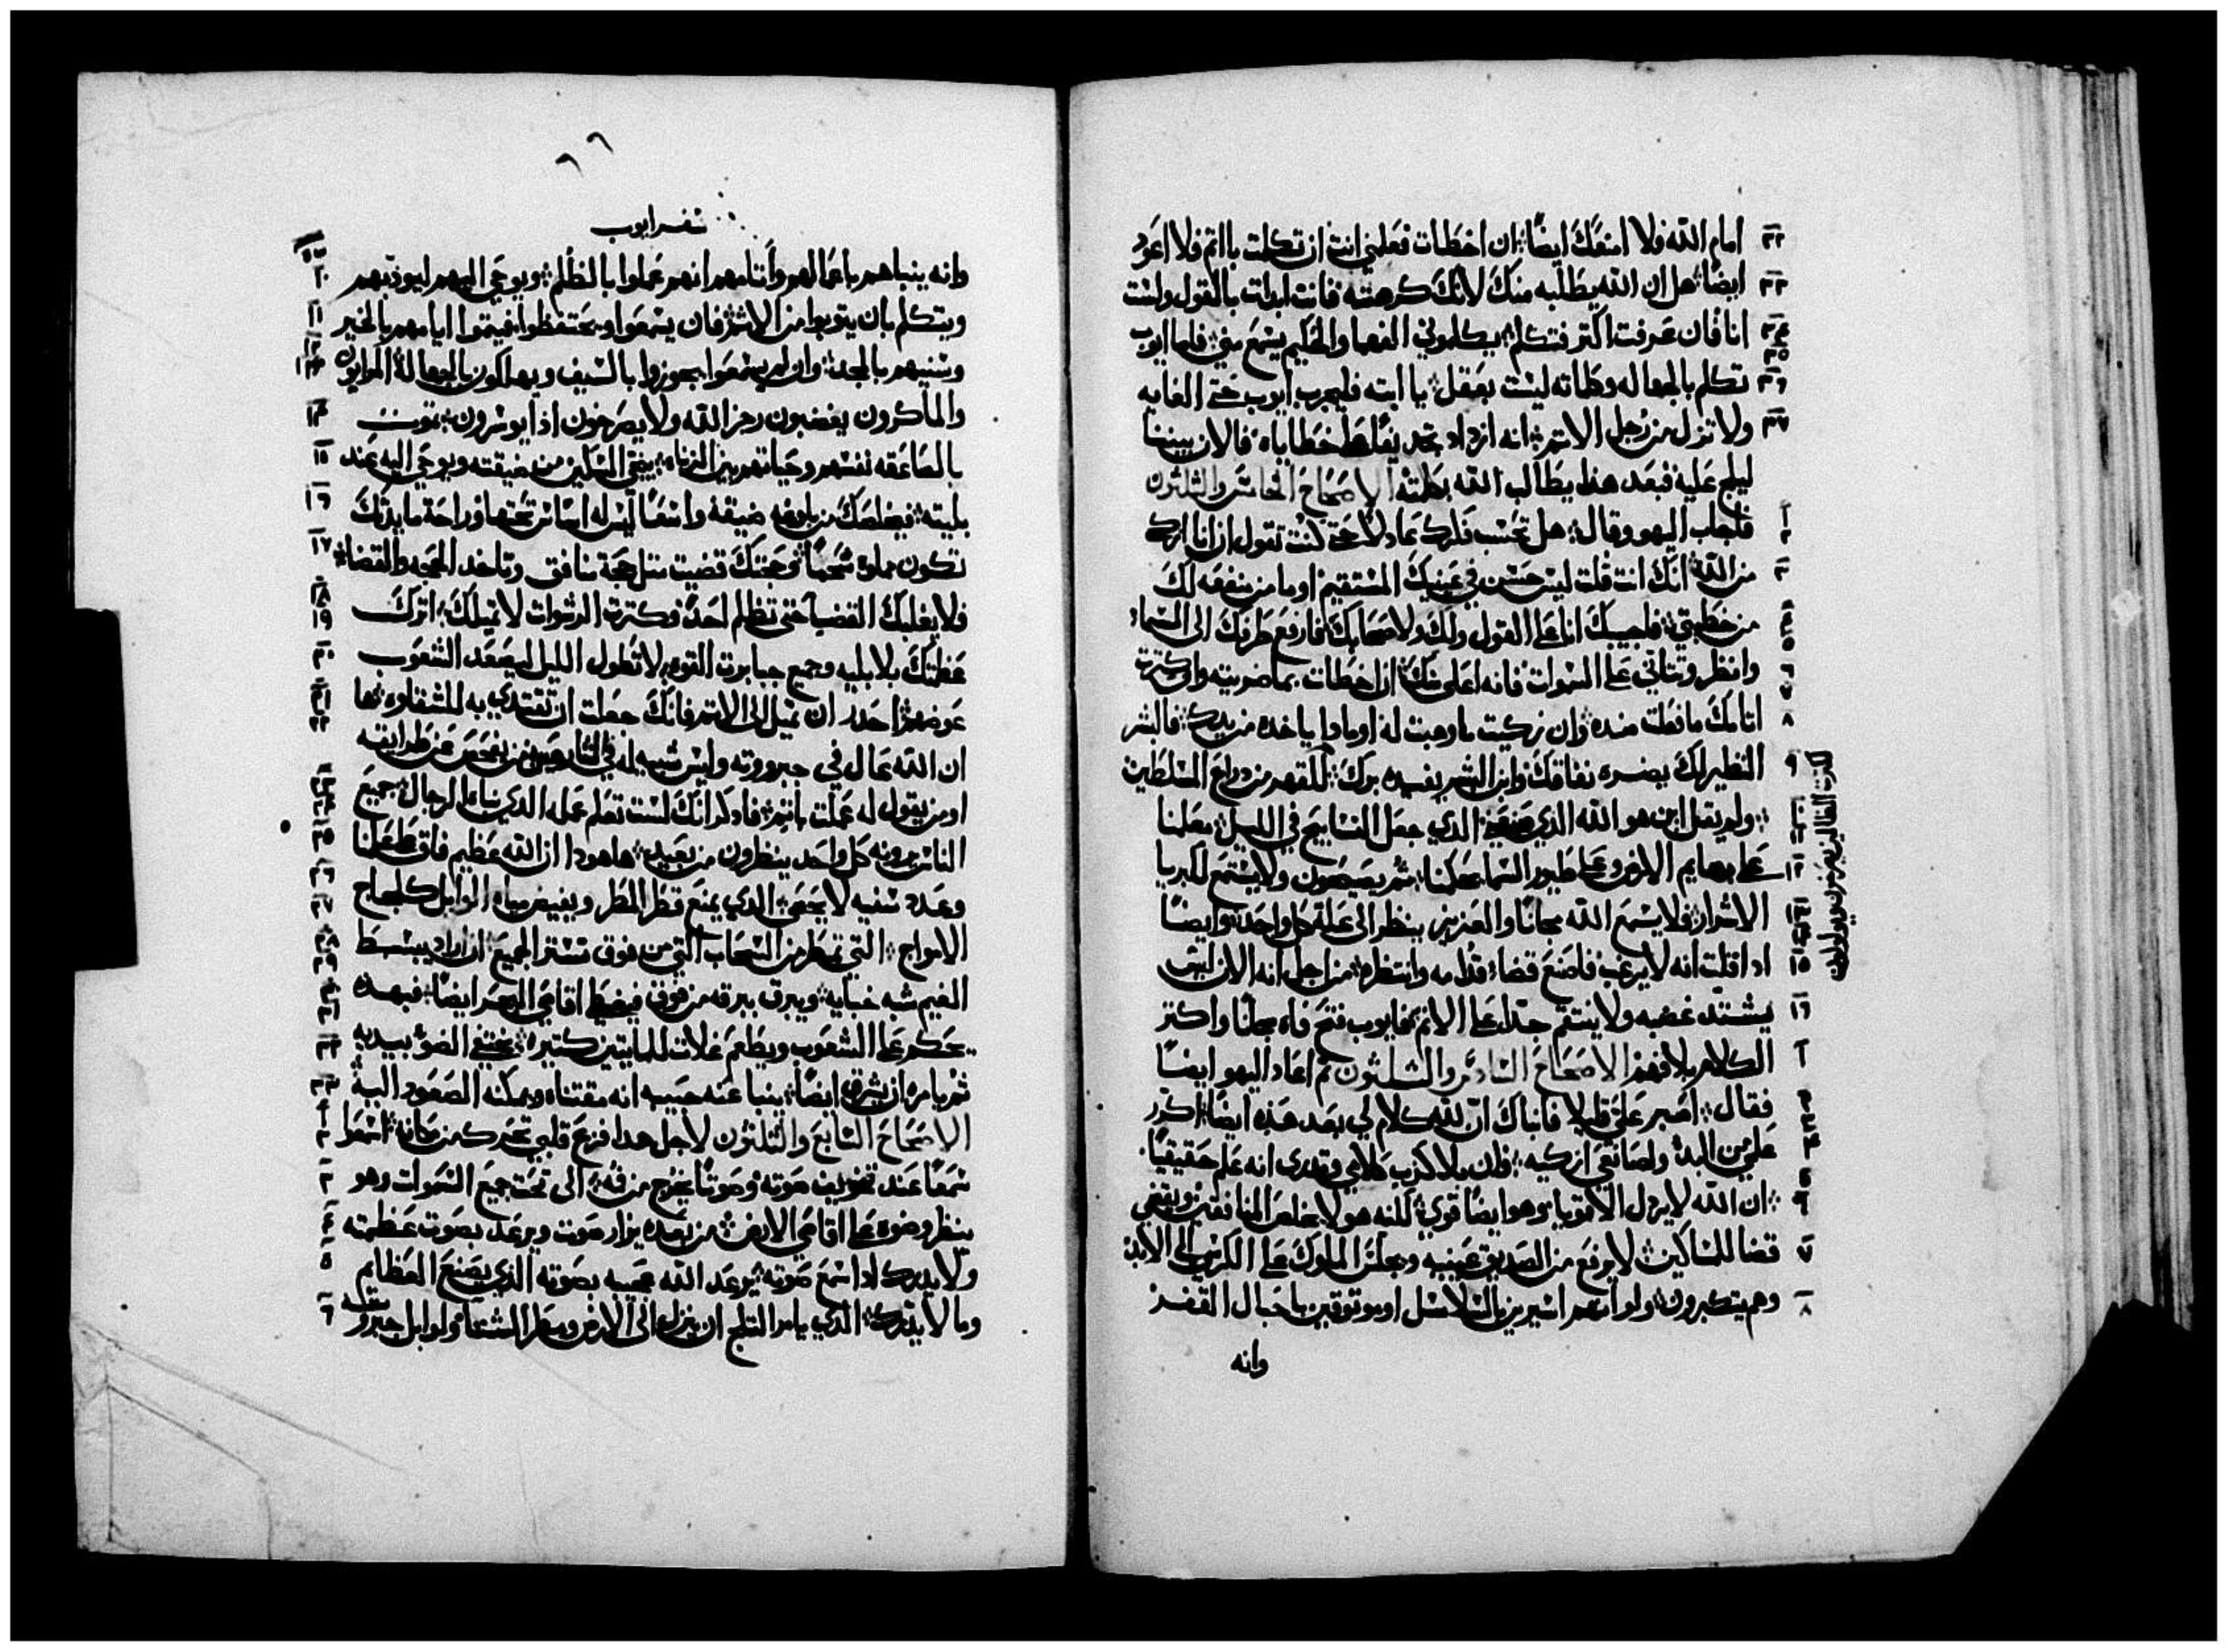 امام الله فلا امنعك ايضًا ان اخطات فعلمني انت ان تكلمت باثم فلا اعود
ايضًا هل ان الله يطلبه منك لانك كرهته فانت ابدات بالقول ولست
انا فان عرفت اكتر فتكلم يكلموني الفهما والحكيم يسمع مني فاما ايوب
تكلم بالجهاله وكلماته ليست بعقل يا ابته فليجرب ايوب حتى الغايه
ولا تزل من رجل الاتم انه ازداد بتجديفًا على خطاياه فالان بيننا
ليلج عليه فبعد هذا يطالب الله بكلمته الاصحاح الخامس والثلثون
فاجاب اليهو وقال هل تحسب فكرك عادلًا حتى كنت تقول ان انا ابرك
من الله انك انت قلت ليس حسن في عينيك المستقيم او ما منفعه لك
من خطيتي فاجيبك انا على القول ولك ولاصحابك فارفع طرفك الى السماء
وانظر وتتاتي على السموات فانه اعلى منك ان اخطات بما ضريته وان كترة
اتامك ما فعلت ضده وان زكيت ما وهبت له او مادا ياخده من يدك فالبشر
النظير لك يضره نفاقك وابن البشر يفيده برك للقهر من دراع السلطين
ولم يقل اين هو الله الذي صنعني الذي جعل التسابيح في الليل يعلمنا
على بهايم الارض وعلى طيور السما يحكمنا ثم يصيحون ولا يستمع لكبريا
الاشرار فلا يسمع الله مجانًا والعزيز ينظر الى علة كل واحد وايضًا
ادا قلت انه لا يرغب فاصنع قضاء قدامه وانتظره من اجل انه الان ليس
يشتد غضبه ولا ينتقم جدًا على الاتم فايوب فتح فاه مجانًا واكتر
الكلام بلا فهم الاصحاح السادس والثلثون تم اعاد اليهو ايضًا
فقال اصبر علي قليلا فانباك ان لله كلام لي بعد هذه ايضًا اكرر
علمي من البدء ولصانعي ازكيه فان بلا كذب كلامي وتدرى انه علم حقيقيًا
ان الله لا يرذل الاقويا وهو ايضًا قوي لكنه هو لا يخلص المنافقين ويقضي
قضا للمساكين لا يرفع من الصديق عينيه ويجلس الملوك على الكرسي الى الابد
وهم يتكبرون ولو انهم اسيرين بالسلاسل او يوتوقين باحبال الفقر
وانه
سفر ايوب
وانه ينباهم باعمالهم واتامهم انهم عملوا بالظلم ويوحي اليهم ليودبهم
ويتكلم بان يتوبوا من الاثم فان يسمعوا ويحتفظوا فيتموا ايامهم بالخير
وسنيهم بالمجد وان لم يسمعوا يجوزوا بالسيف ويهلكون بالجهالة المرايون
والماكرون يغضبون رجز الله ولا يصرخون اذا يوسرون تموت
بالصاعقه نفسهم وحياتهم بين الزناه ينجي المسكين من ضيقته ويوحي اليه عند
بليته فيخلصك من افواه ضيقة واسعًا ليس له اساس تحتها وراحة مايدتك
تكون مملوه شحمًا وحجتك قضيت مثل حجة منافق وتاخد الحجه والقضاء
فلا يغلبك الغضب حتى تظلم احدًا وكترت الرشوات لا تميلك اترك
عظمتك بلا بليه وجميع جبابرت القوه لا تطول الليل ليصعد الشعوب
عوضهم احدر ان تميل الى الاتم فانك جعلت ان تقتدي به للشقاوه ها
ان الله عال في جبروته وليس شبيه له في الشارعين من يفحص عن طرايقه
او من يقول له عملت باتم فادكر انك لست تعلم عمله الدي رناه الرجال جميع
الناس يرونه كل واحد ينظرون من بعيد هاهودا ان الله عظيم فاق علمنا
وعدد سنيه لا يحصى الدي يمنع قطر المطر ويفيض مياه الوابل كلجاج
الامواج التي تمطر من السحاب التي من فوق تستر الجميع ان اراد يبسط
الغيم شبه خبايه ويبرق ببرقه من فوق فيغطي اقاصي البحر ايضًا فبهده
يحكم على الشعوب ويطعم غلات للمايتين كتيره يختفي الضو بيديه
ثم يامره ان يشرق ايضًا ينبا عنه حبيبه انه مقتناه ويمكنه الصعود اليه
الاصحاح السابع والثلثون لاجل هدا فزع قلبي تحرك من مكانه اسمعوا
سمعًا عند تخويف صوته وصوتًا يخرج من فمه الى تحت جميع السموات وهو
ينظر وضوه على اقاصي الارض من بعده يزار صوت ويرعد بصوت عظمته
ولا يدرك ادا سمع صوته يرعد الله عجيبه بصوته الدي يصنع العظايم
وما لا يدرك الدي يامر التلج ان ينزل الى الارض ومطر الشتاء ولوابل جبروته